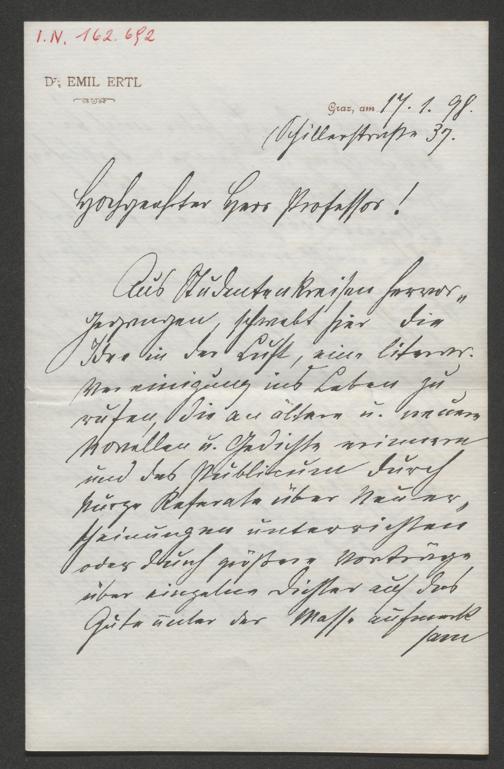 I.N. 162.692
Dr. EMIL ERTL
Graz, am 17. 1. 98.
Schillerstraße 37.
Hochgeehrter Herr Professor!
Aus Studentenkreisen hervor-
gegangen, schwebt hier die
Idee in der Luft, eine literar.
Vereinigung ins Leben zu
rufen, die an ältere u. neuere
Novellen u. Gedichte erinnern
und das Publicum durch
kurze Referate über Neuer-
scheinungen unterrichten
oder durch größere Vorträge
über einzelne Dichter auf das
Gute unter der Masse aufmerk
sam